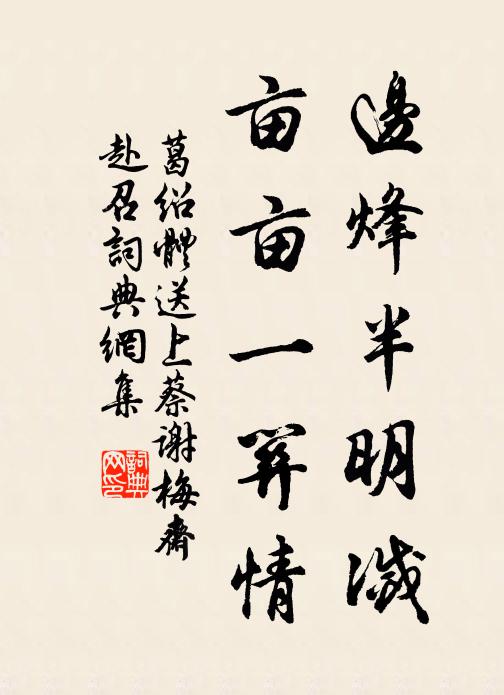 邊烽半明滅
亩亩一情
葛紹體送上蔡謝梅齋
赴召詞典網集
詞典
网印